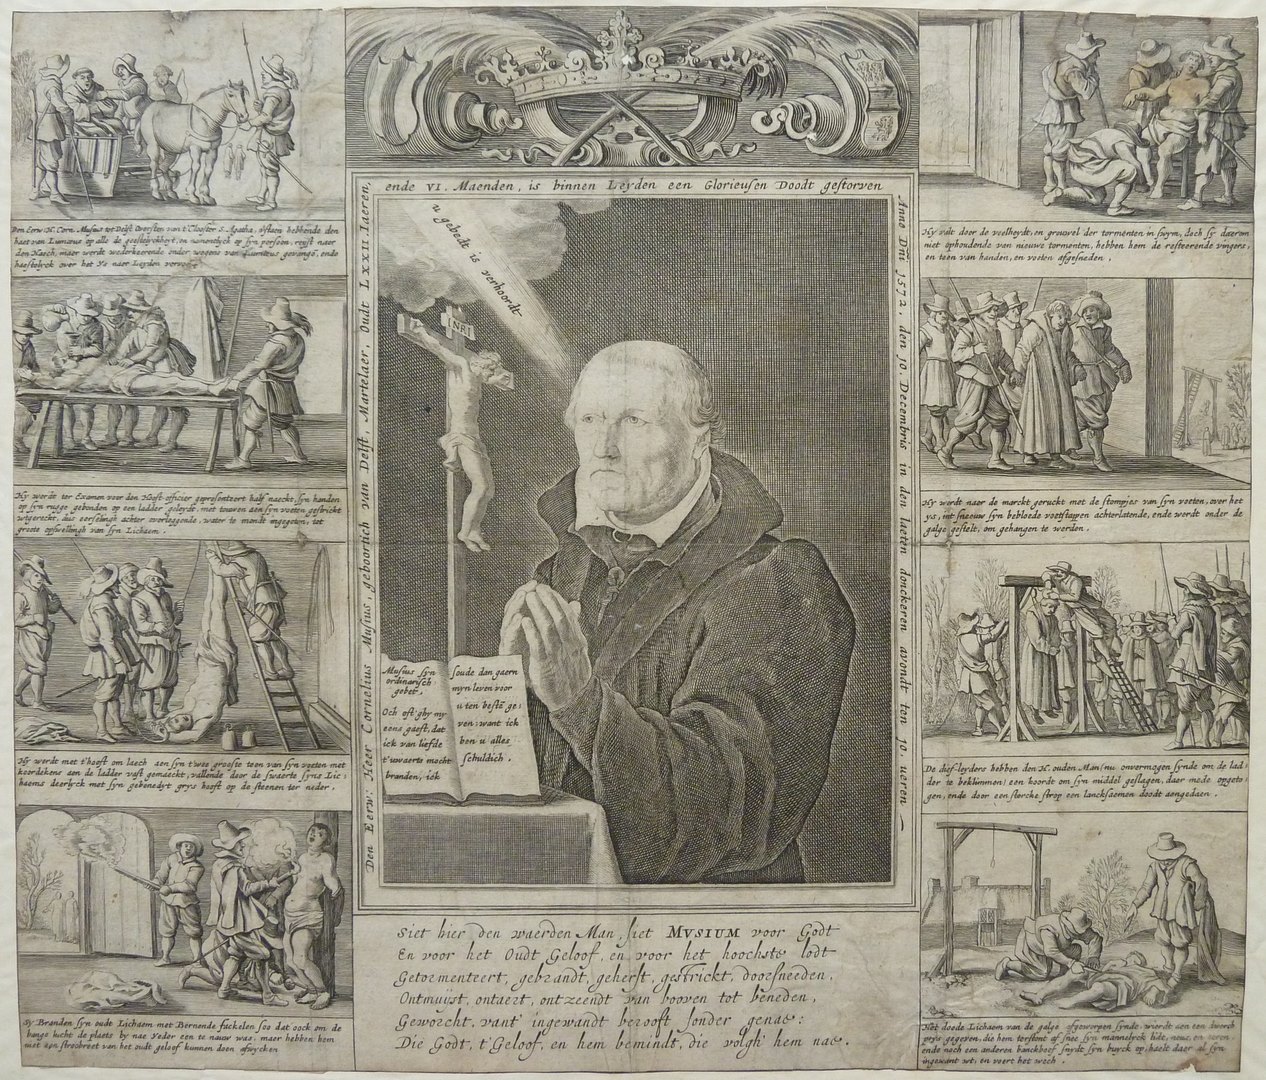 Den Eerw. H. Corn. Musius tot Delft Oversten van't Clooster S. Agatha, ofstaen hebbende den
haet van Lumæus op alle de geestelyckheyt, en namentlyck op syn persoon, reyst naer
den Haech, maer werdt wederkeerende onder wegens van Lumæus gevangē, ende
haestelyck over het Ys naer Leyden
Hy wordt ter Examen voor den Hooft-officier gepresenteert half naeckt, syn handen
op syn rugge gebonden op een ladder geleydt, met touwen aen syn voeten gestrickt
wtgereckt, dus eerselingh achter overleggende, water te mondt ingegoten, tot
groote opswellingh van syn Lichaem.
Hy werdt met t'hooft om laech aen syn twee grootste teen van syn voeten met
koordekens aen de ladder vast gemaeckt, vallende door de swaerte syns Lic:
haems deerlyck met syn gebenedyt grys hooft op de steenen ter neder.
Sy Branden syn oudt Lichaem met Bernende fackelen soo dat oock om de
bange lucht de plaets by nae Yeder een te nauw was, maer hebben hem
met een stroobreet van het oudt geloof kunnen doen afwycken
Den Eerw: Heer Cornelius Musius, geboortich van Delft, Martelaer, Oudt LXXII Iaeren,
ende VI. Maenden, is binnen Leyden een Glorieusen Doodt gestorven
Anno Dñi 1572, den 10. Decembris in den laeten donckeren avondt ten 10 uren
u gebedt is verhoordt
INRI
Musius syn
ordinarisch
gebet,
Och oft ghy my
eens gaeft, dat
ick van liefde
t'uwaerts mocht
branden, ick
soude dan gaern
myn leven voor
u ten beste ge:
ven: want ick
ben u alles
schuldich.
Siet hier den waerden Man, siet MVSIUM voor Godt
En voor het Oudt Geloof, en voor het hoochste lodt
Getormenteert, gebrandt, geherst, gestrickt, doorsneeden,
Ontmuijst, ontaert, ontzeendt van booven tot beneden,
Geworcht, vant' ingewandt berooft sonder genae:
Die Godt, t'Geloof, en hem bemindt, die volgh' hem nae.
Hy valt door de veelheydt, en grouwel der tormenten in swym, doch sy daerom
niet ophoudende van nieuwe tormenten, hebben hem de resteerende vingers,
en teen van handen, en voeten afgesneden.
Hy werdt naer de marckt geruckt met de stompjes van syn voeten, over het
ys, int sneeuw syn bebloede voetstappen achterlatende, ende werdt onder de
galge gestelt, om gehangen te werden.
De dief-leyders hebben den H. ouden Man (nu onvermogen synde om de lad:
der te beklimmen) een koordt om syn middel geslagen, daer mede opgeto:
gen, ende door een stercke strop een lancksaemen doodt aengedaen.
Het doode Lichaem van de galge afgeworpen synde, wierdt aen een
prys gegeven, die hem terstont af snee syn mannelyck lidt, neus, en ooren
ende noch een anderen banckboef snydt syn buyck op, haelt daer al syn
ingewant wt, en voert het wech.